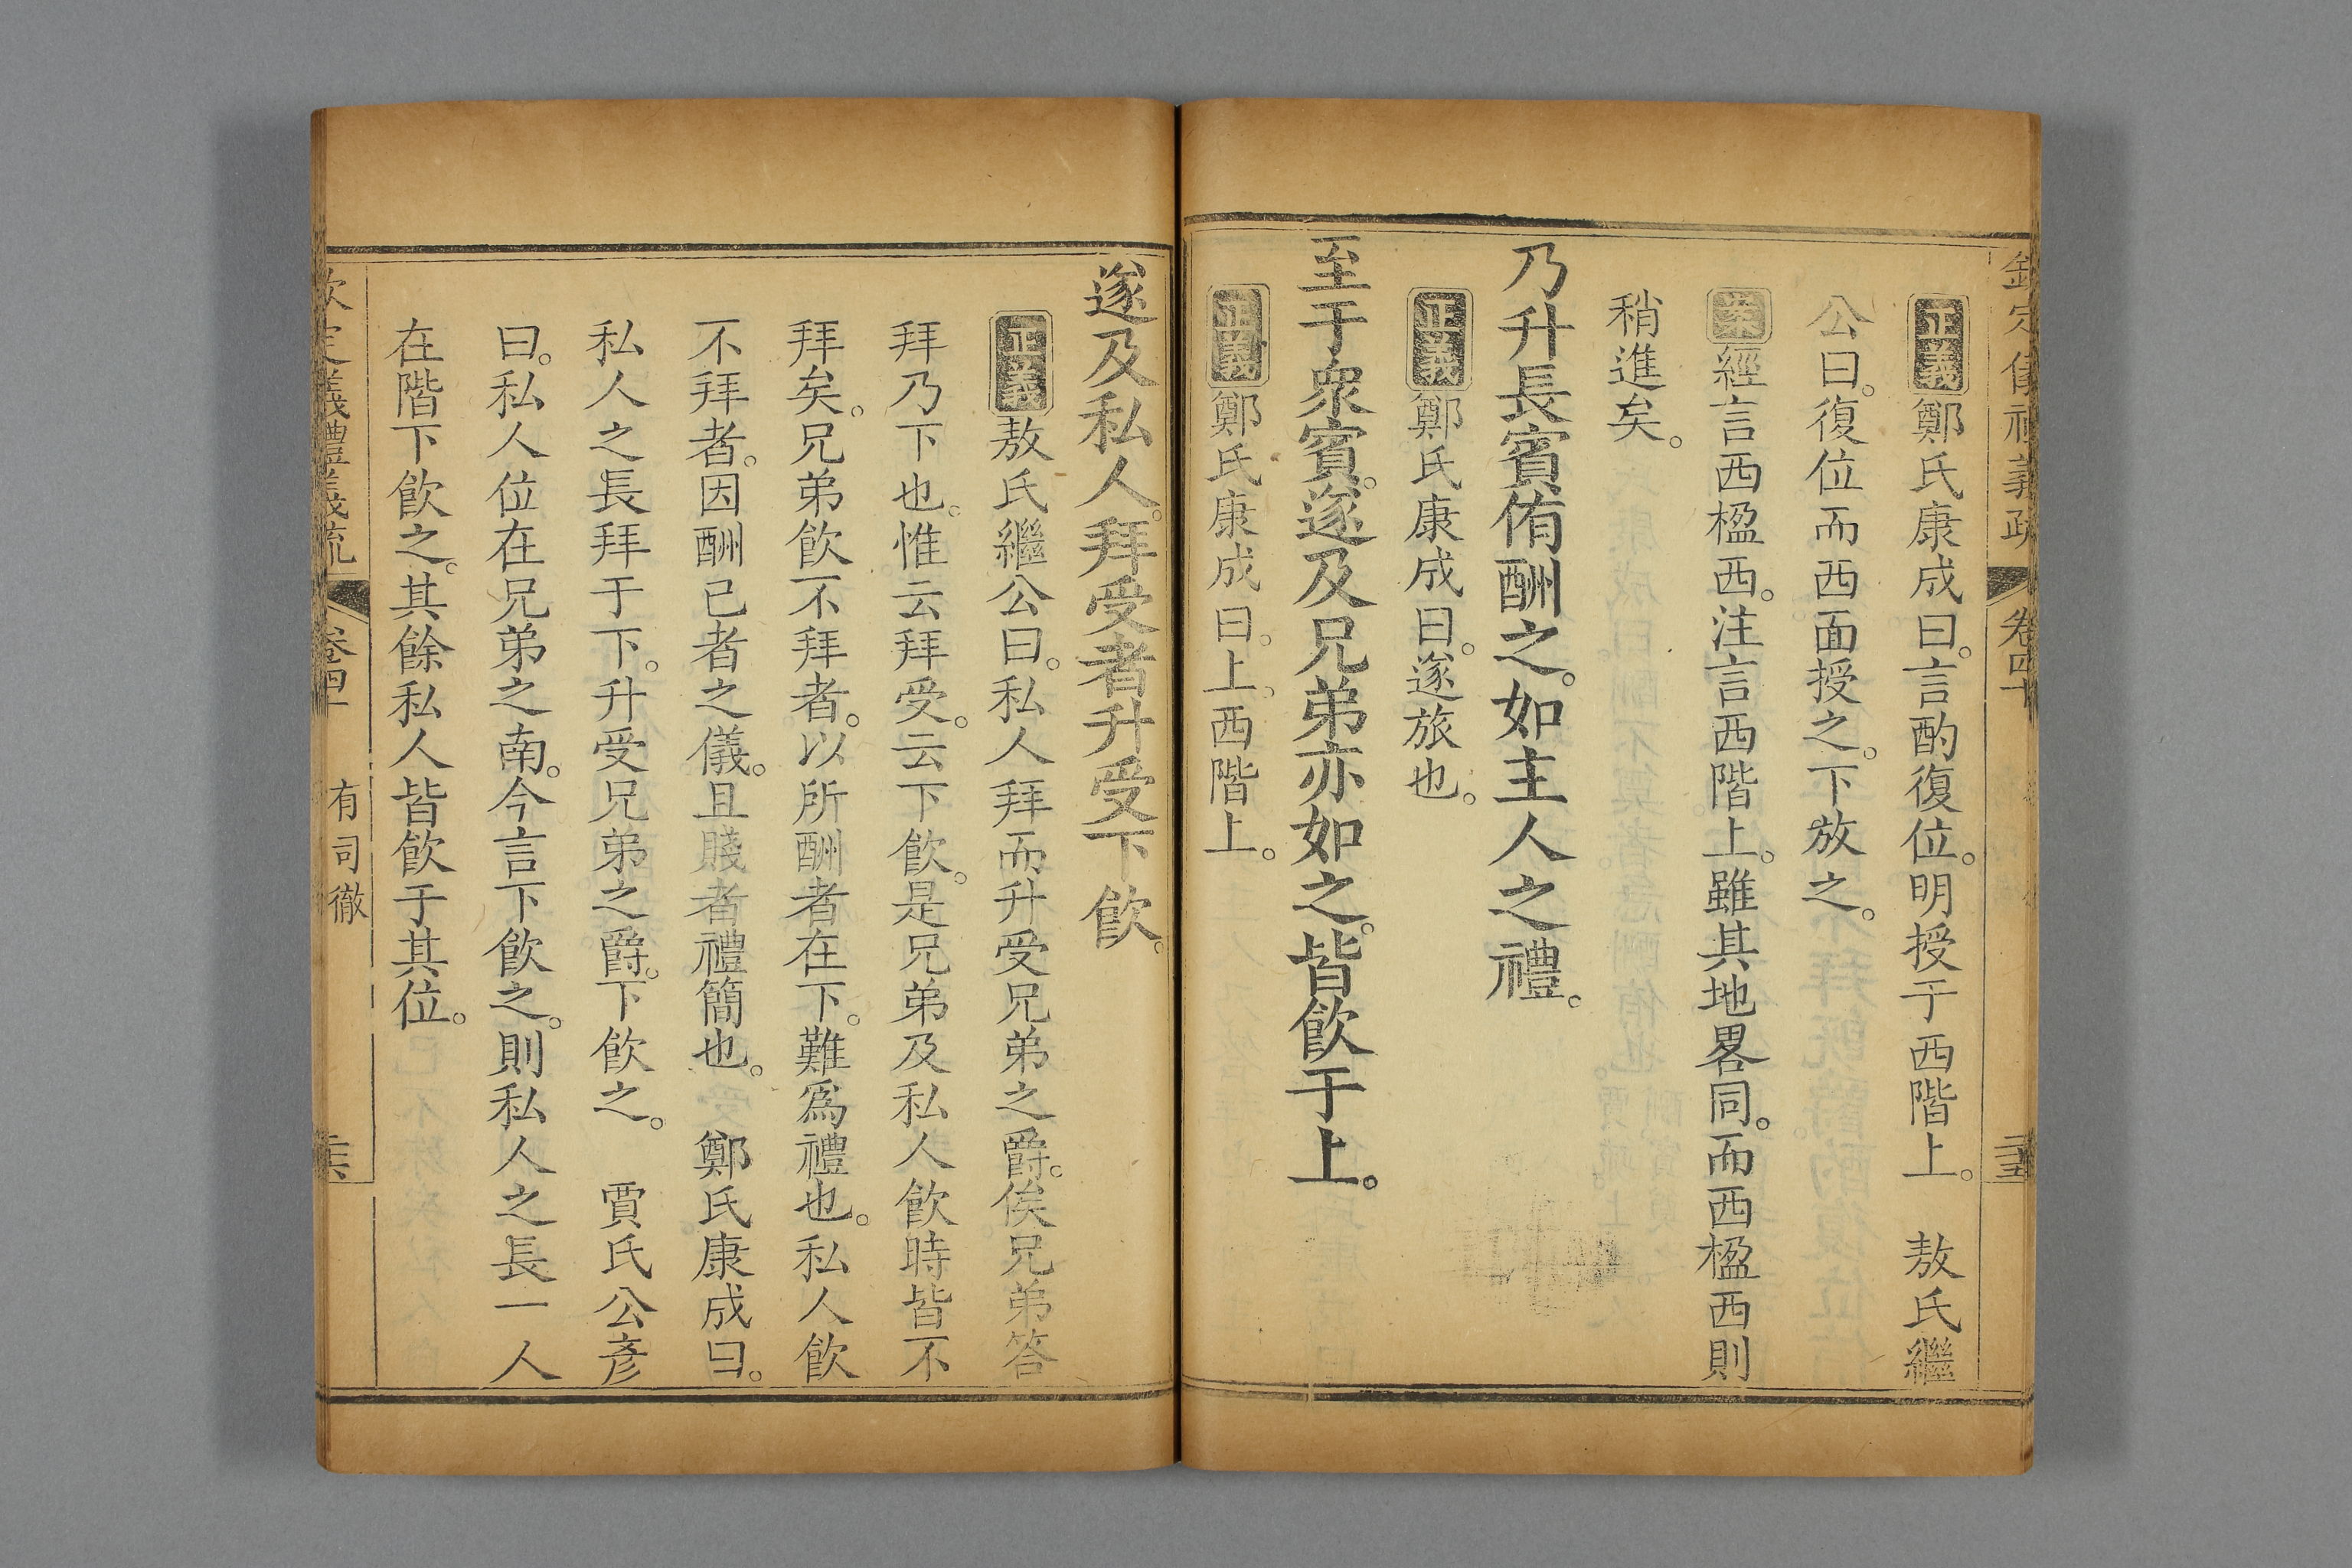 欽定儀禮義疏 卷四十 三五
正義鄭氏康成曰。言酌復位。明授于西階上。 敖氏繼
公曰。復位而西面授之。下放之。
案經言西楹西。注言西階上。雖其地畧同。而西楹西則
稍進矣。
乃升長賓侑酬之。如主人之禮。
正義鄭氏康成曰。遂旅也。
至于衆賓。遂及兄弟亦如之。皆飲于上。
正義鄭氏康成曰。上。西階上。
遂及私人。拜受者升受下飲。
正義敖氏繼公曰。私人拜而升受兄弟之爵。俟兄弟答
拜乃下也。惟云拜受。云下飲。是兄弟及私人飲時皆不
拜矣。兄弟飲不拜者。以所酬者在下。難爲禮也。私人飲
不拜者。因酬己者之儀。且賤者禮簡也。 鄭氏康成曰。
私人之長拜于下。升受兄弟之爵。下飲之。 賈氏公彥
曰。私人位在兄弟之南。今言下飲之。則私人之長一人
在階下飲之。其餘私人皆飲于其位。
欽定儀禮義疏 卷四十 有司徹 三六